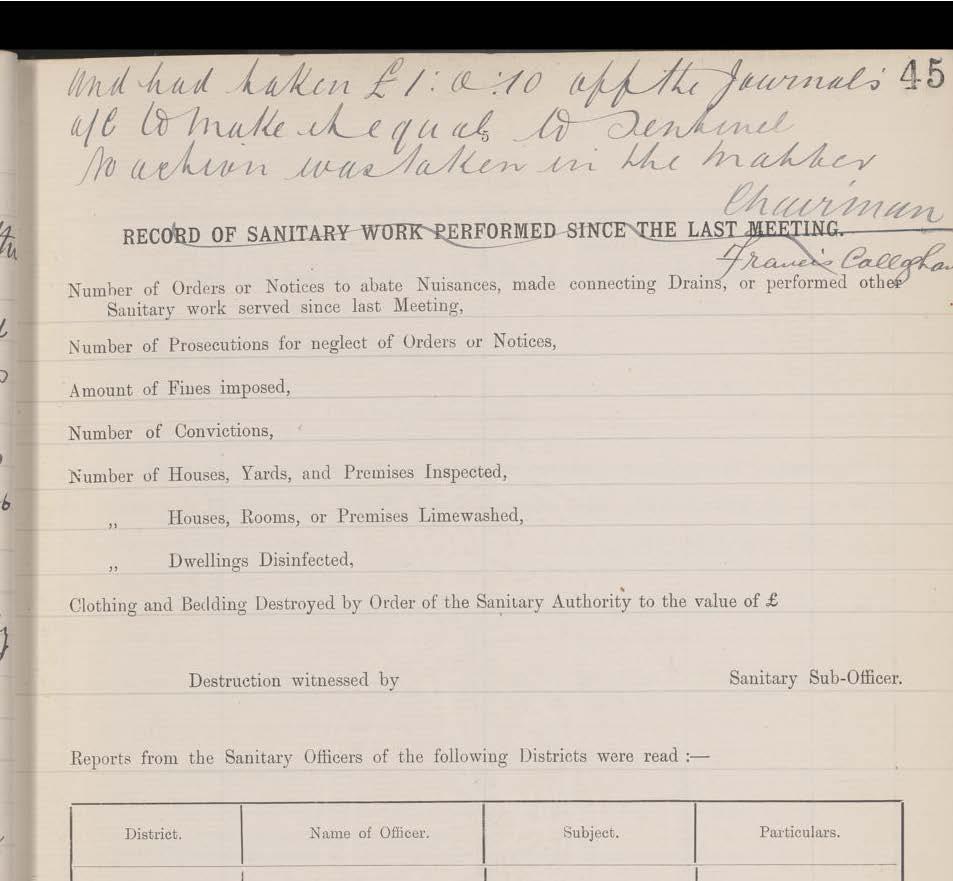 and had taken £1:0:10 off the Journal's 45
a/c to make it equal to Sentinel
No action was taken in the matter
Chairman
RECORD OF SANITARY WORK PERFORMED SINCE THE LAST MEETING.
Francis Calleghan
Number of Orders or Notices to abate Nuisances, made connecting Drains, or performed other
Sanitary work served since last Meeting,
Number of Prosecutions for neglect of Orders or Notices,
Amount of Fines imposed,
Number of Convictions,
Number of Houses, Yards, and Premises Inspected,
„ Houses, Rooms, or Premises Limewashed,
„ Dwellings Disinfected,
Clothing and Bedding Destroyed by Order of the Sanitary Authority to the value of £
Destruction witnessed by Sanitary Sub-Officer.
Reports from the Sanitary Officers of the following Districts were read :—
District. Name of Officer. Subject. Particulars.